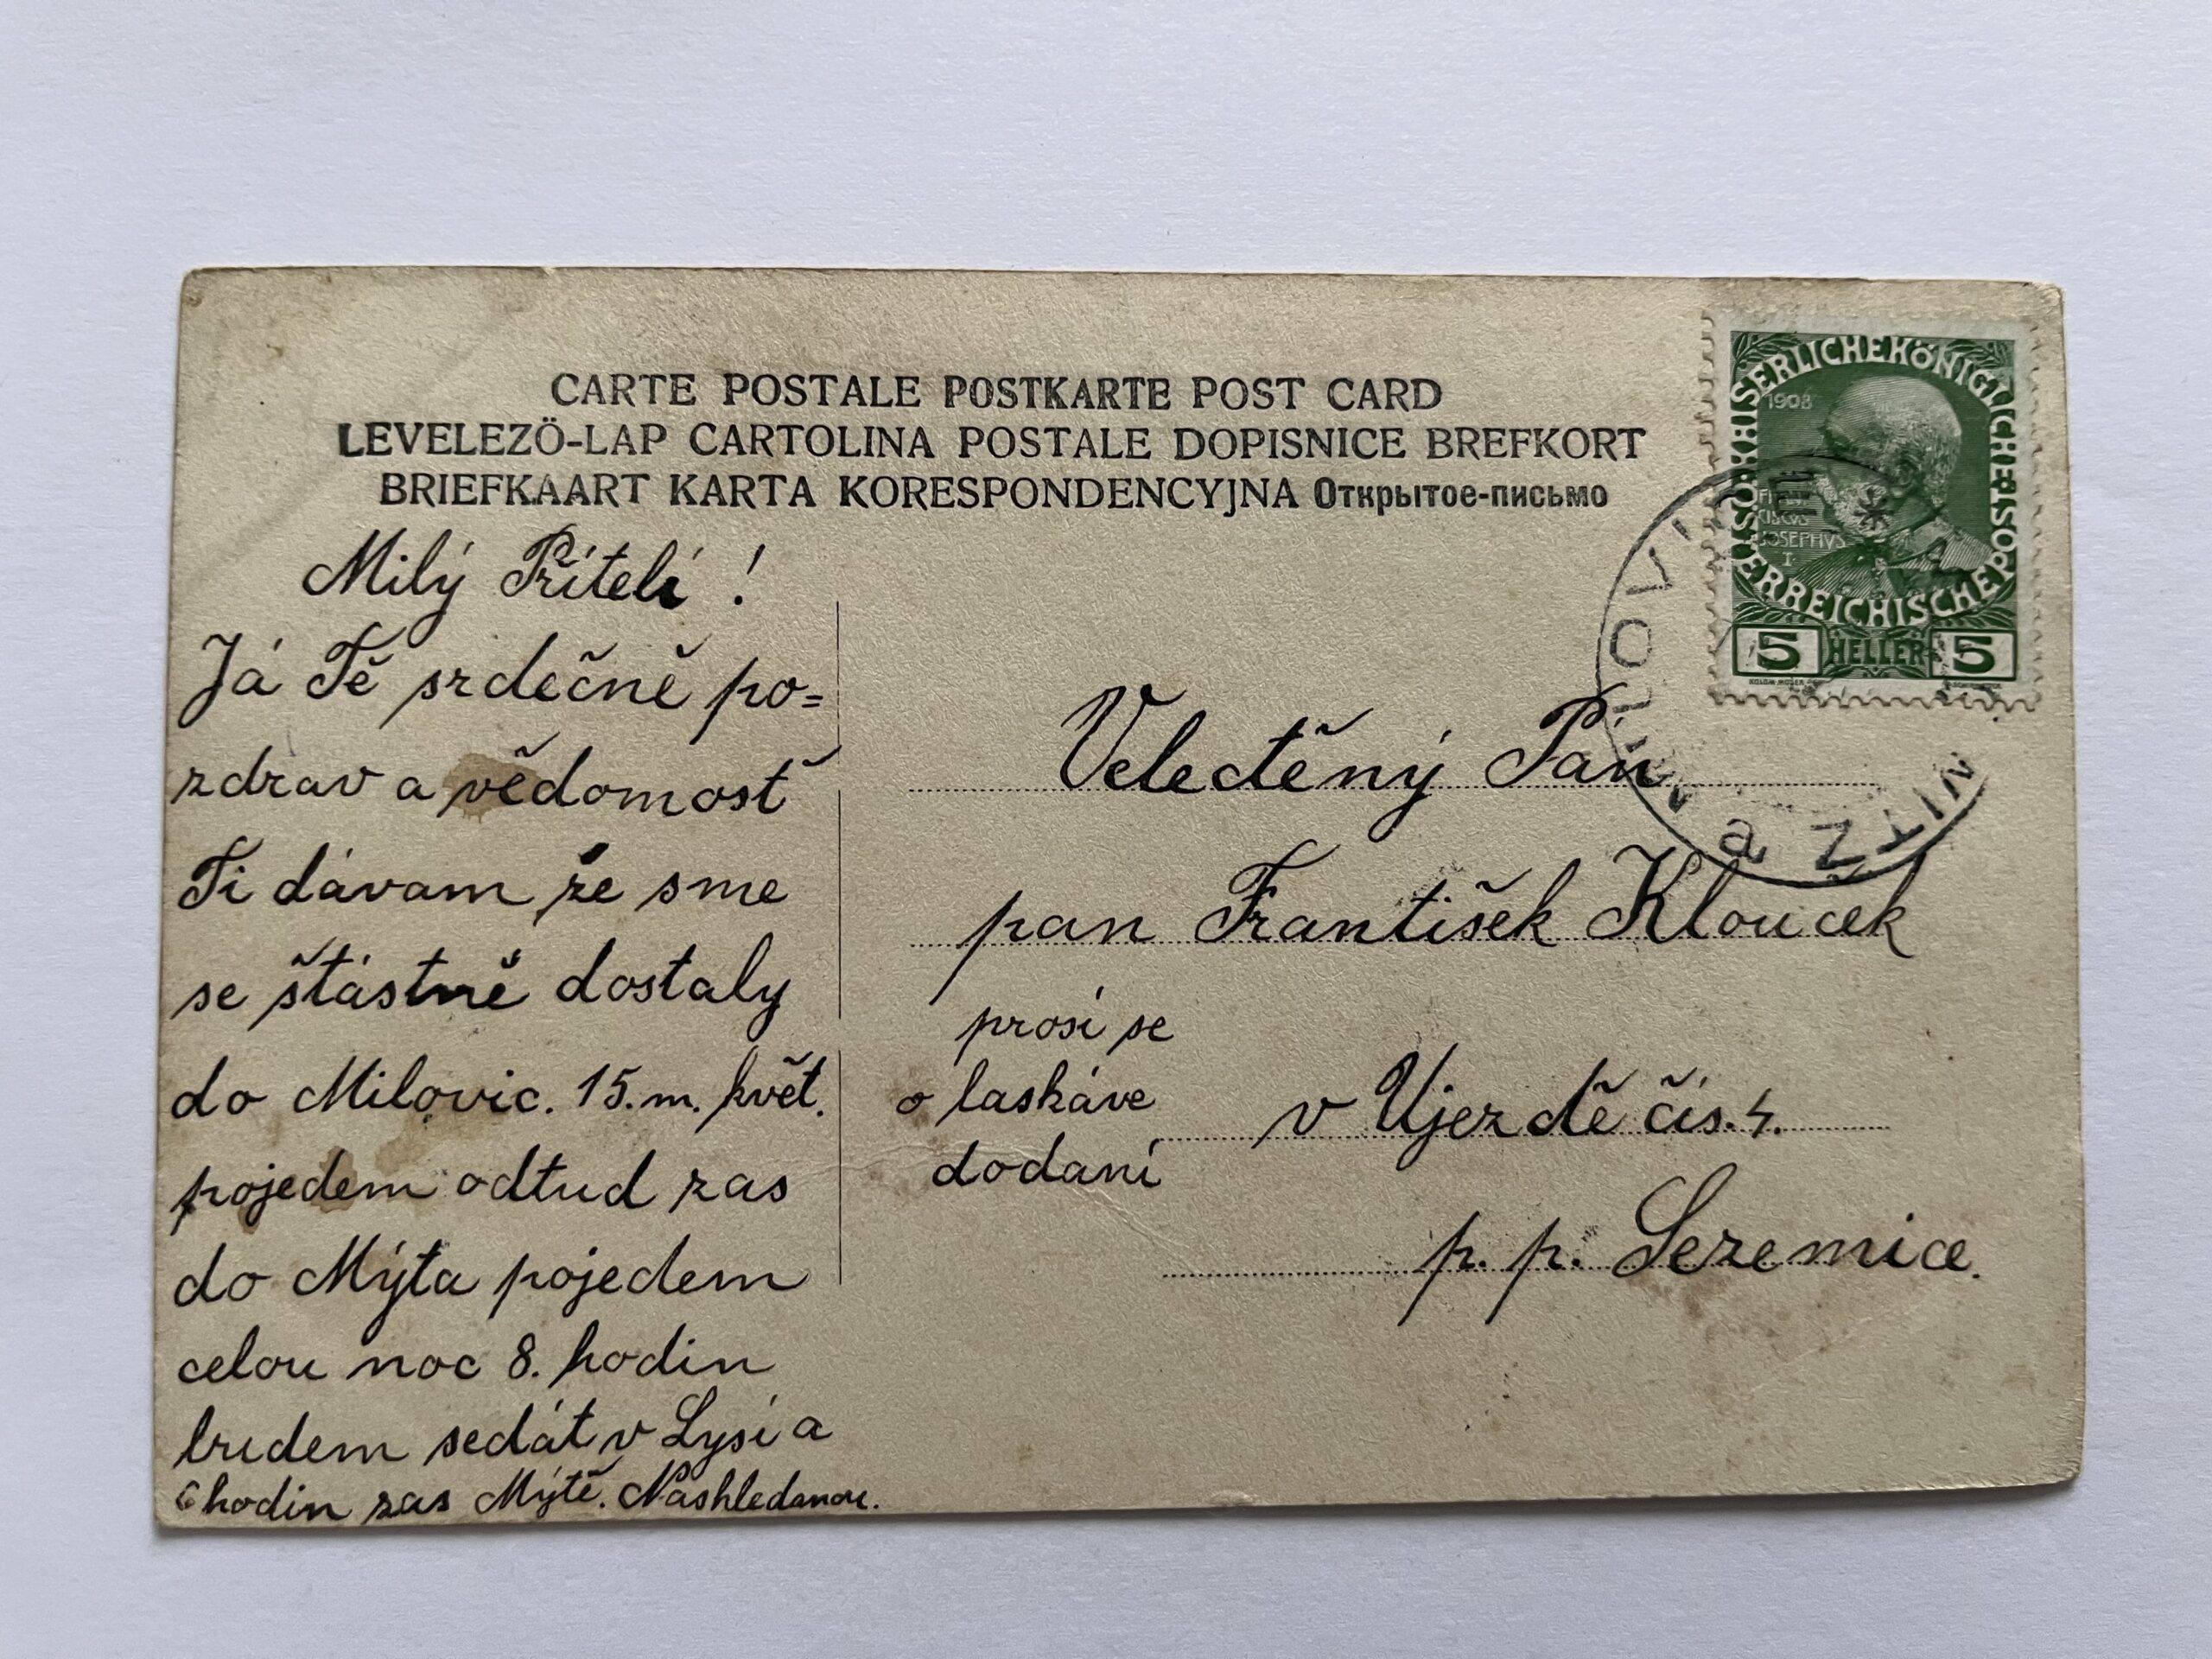 CARTE POSTALE POSTKARTE POST CARD
LEVELEZÖ-LAP CARTOLINA POSTALE DOPISNICE BREFKORT
BRIEFKAART KARTA KORESPONDENCYJNA Открытое-письмо
KAISERLICHEKÖNIGLICHE ÖSTERREICHISCHE POST
1908
FRANCISCVS
IOSEPHVS
I
5 HELLER 5
Milý Příteli !
Já Tě srdečně po=
zdrav a vědomosť
Ti dávam že sme
se šťástně dostaly
do Milovic. 15. m. květ.
pojedem odtud zas
do Mýta pojedem
celou noc 8. hodin
budem sedát v Lysí a
6 hodin zas Mýtě. Nashledanou.
Velectěný Pan
pan František Klouček
prosí se
o laskáve
dodaní
v Ujezdě čís. 4.
p. p. Sezemice.